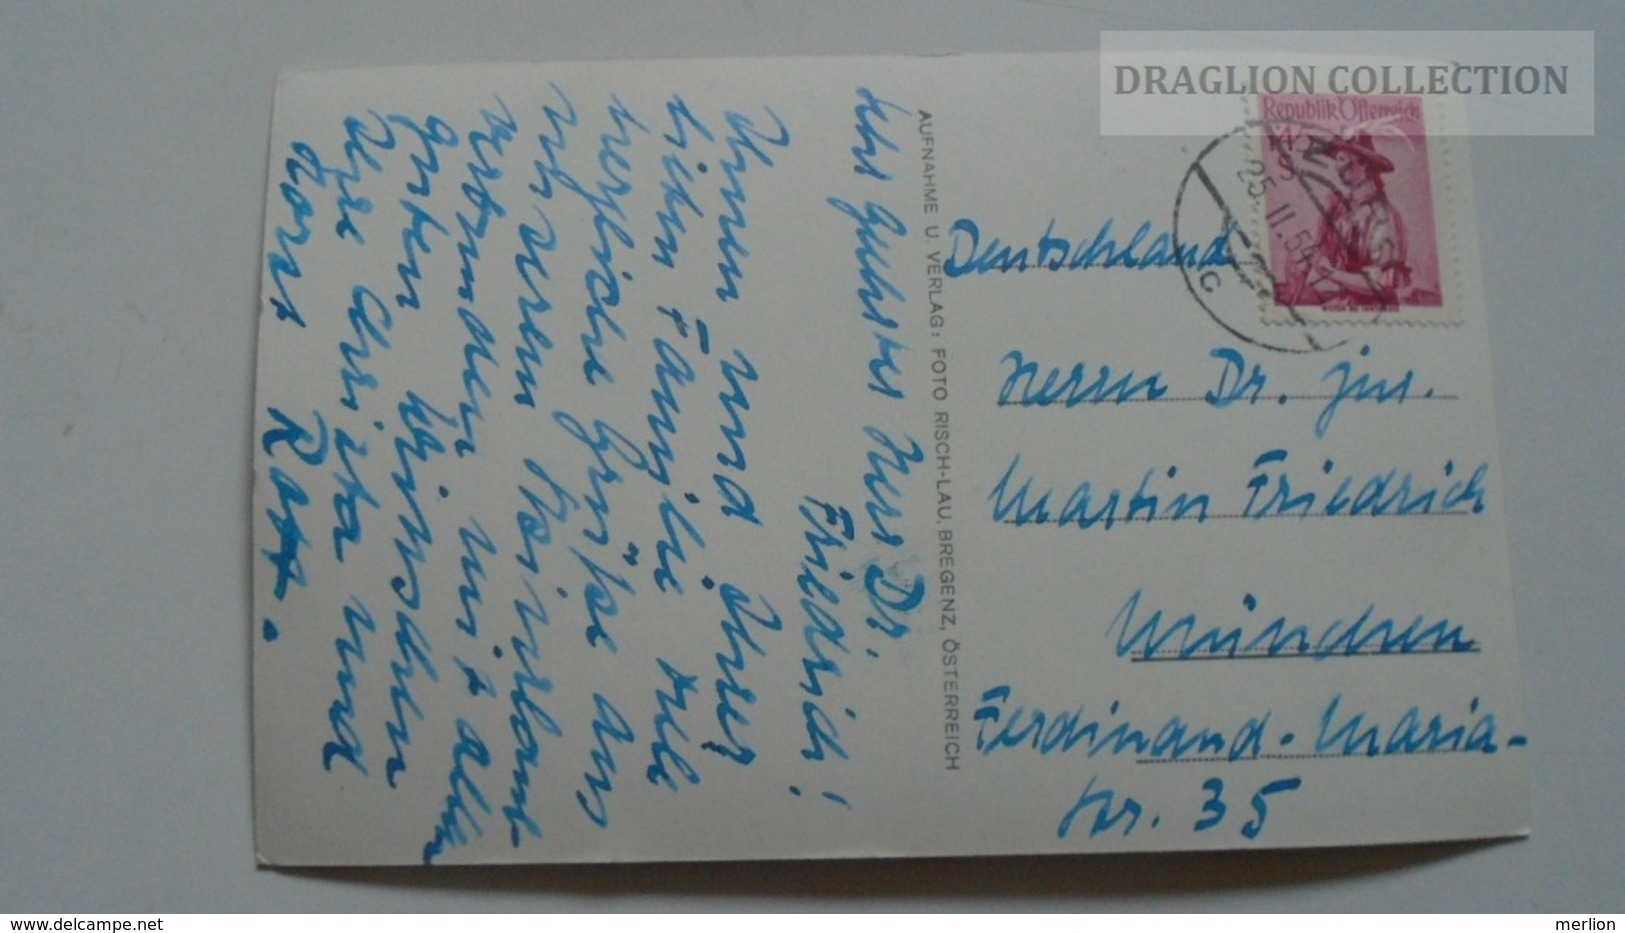 DRAGLION COLLECTION
Republik Österreich
1 S
ZÜRS
25. II. 54. 17
C
Sehr Geehrter Herr Dr.
Friedrich!
Ihnen und Ihrer
lieben Familie viele
herzliche Grüße aus
unserem Skiurlaub
verbunden mit allen
guten Wünschen
Ihre Christa und
Horst Rott.
AUFNAHME U. VERLAG: FOTO RISCH-LAU, BREGENZ, ÖSTERREICH
Deutschland
Herrn Dr. jur.
Martin Friedrich
München
Ferdinand-Maria-
Str. 35
delcampe.net
merlion